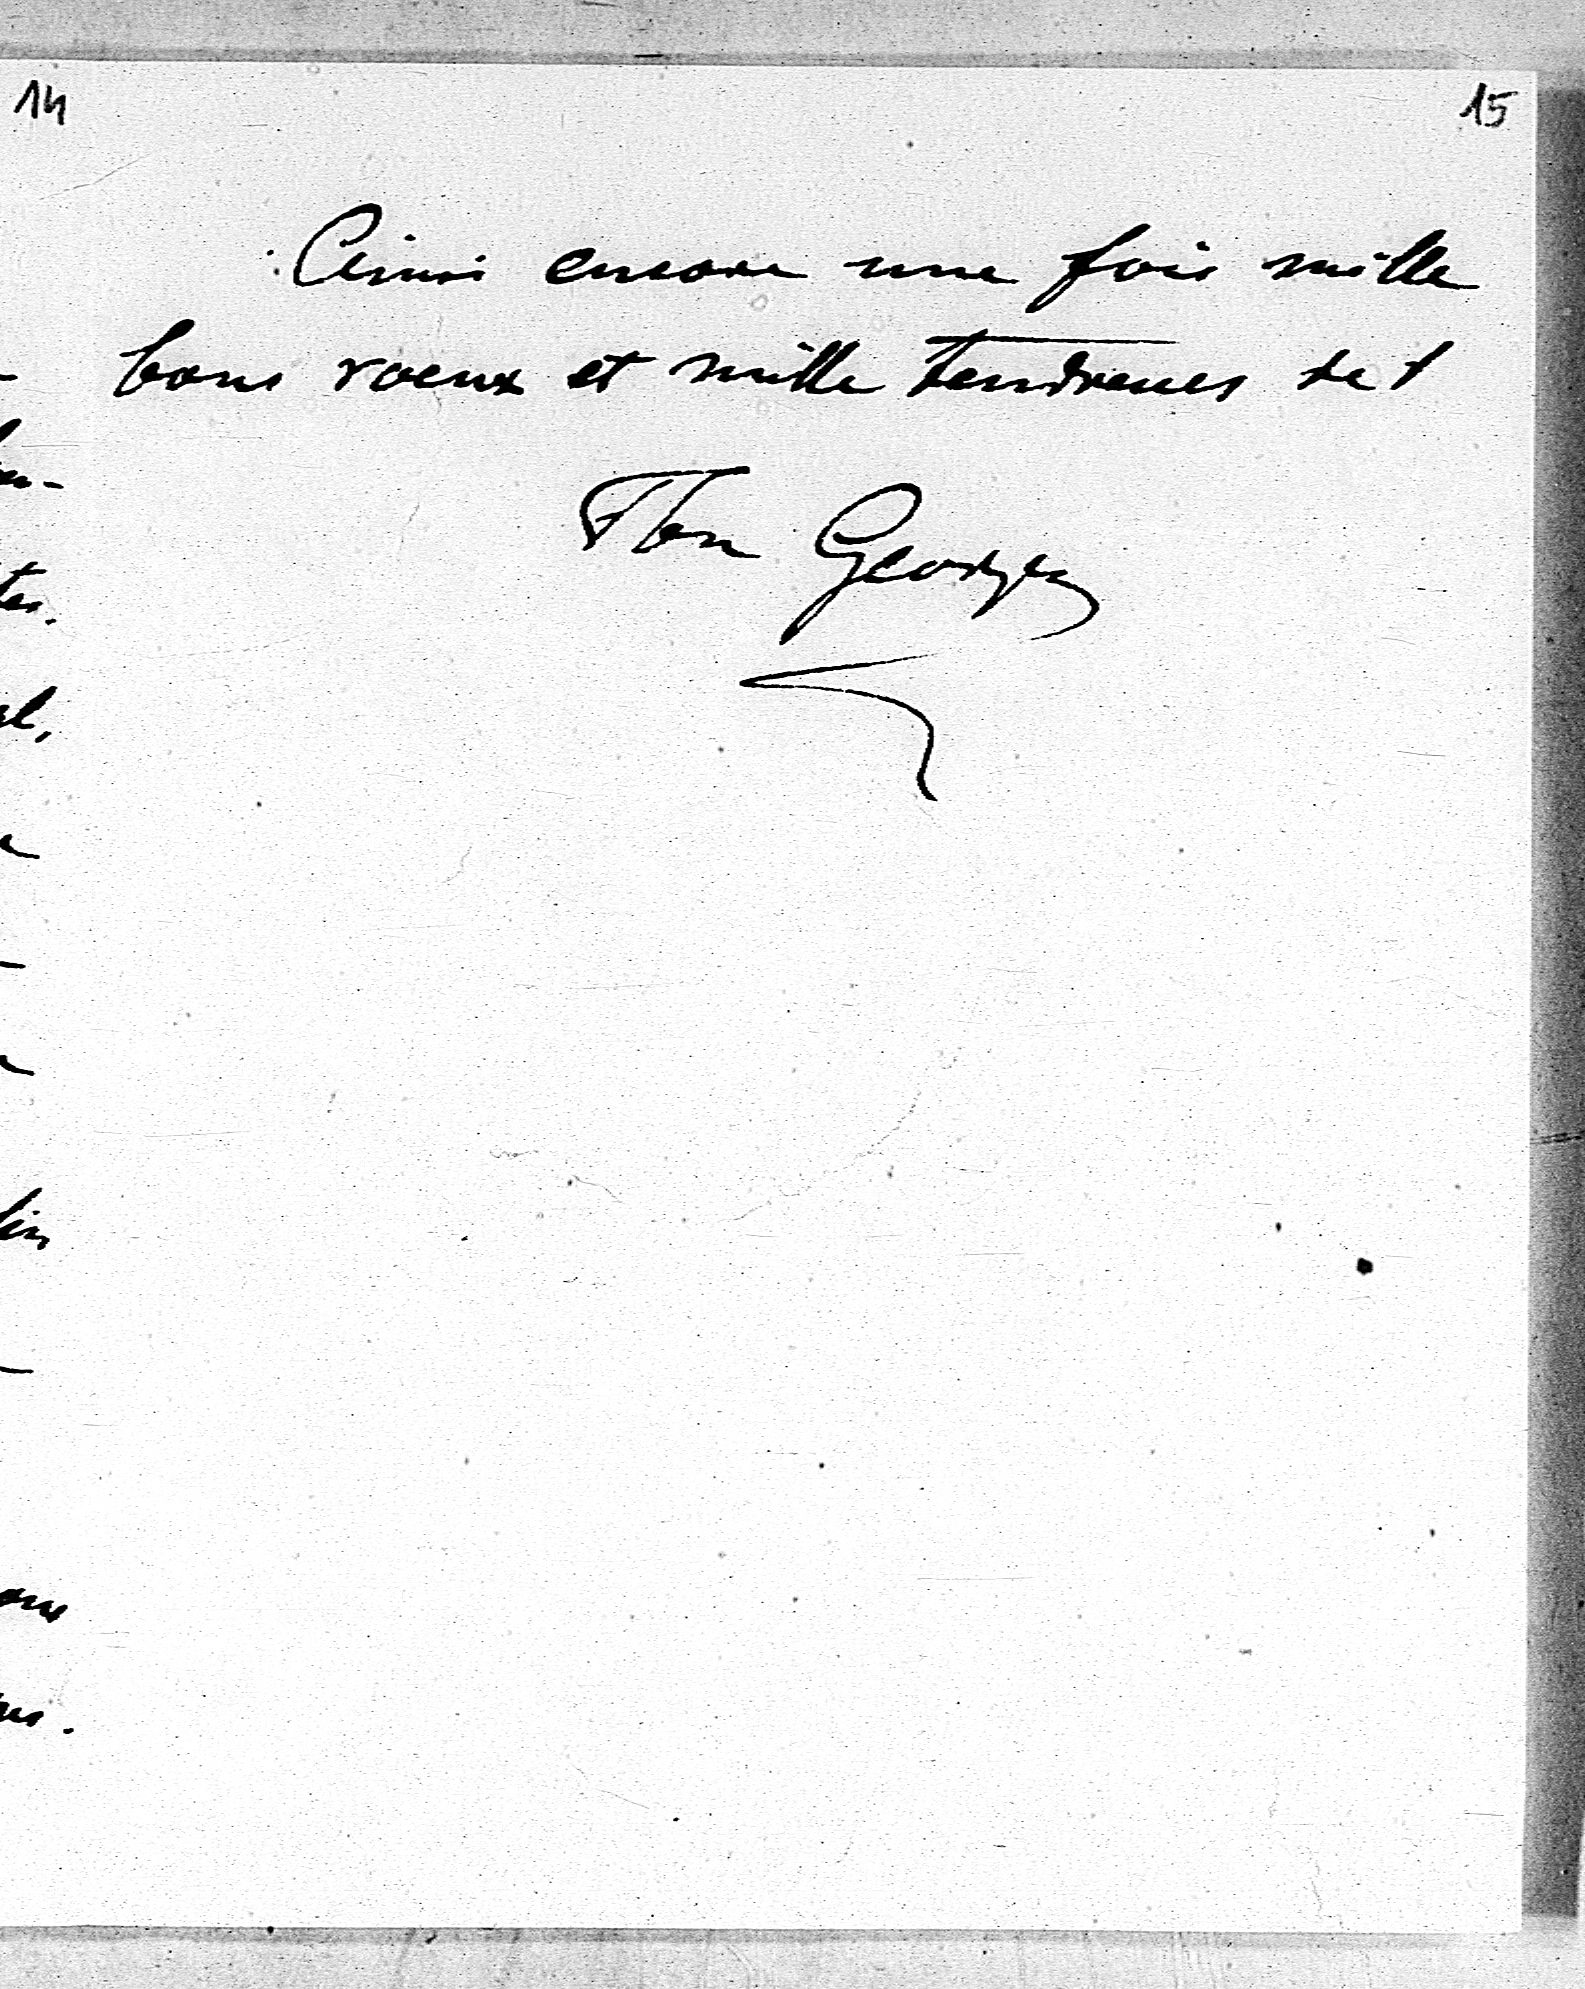 14
15
Ainsi encore une fois mille
bons voeux et mille tendresses de t
Ton Georges
ter.